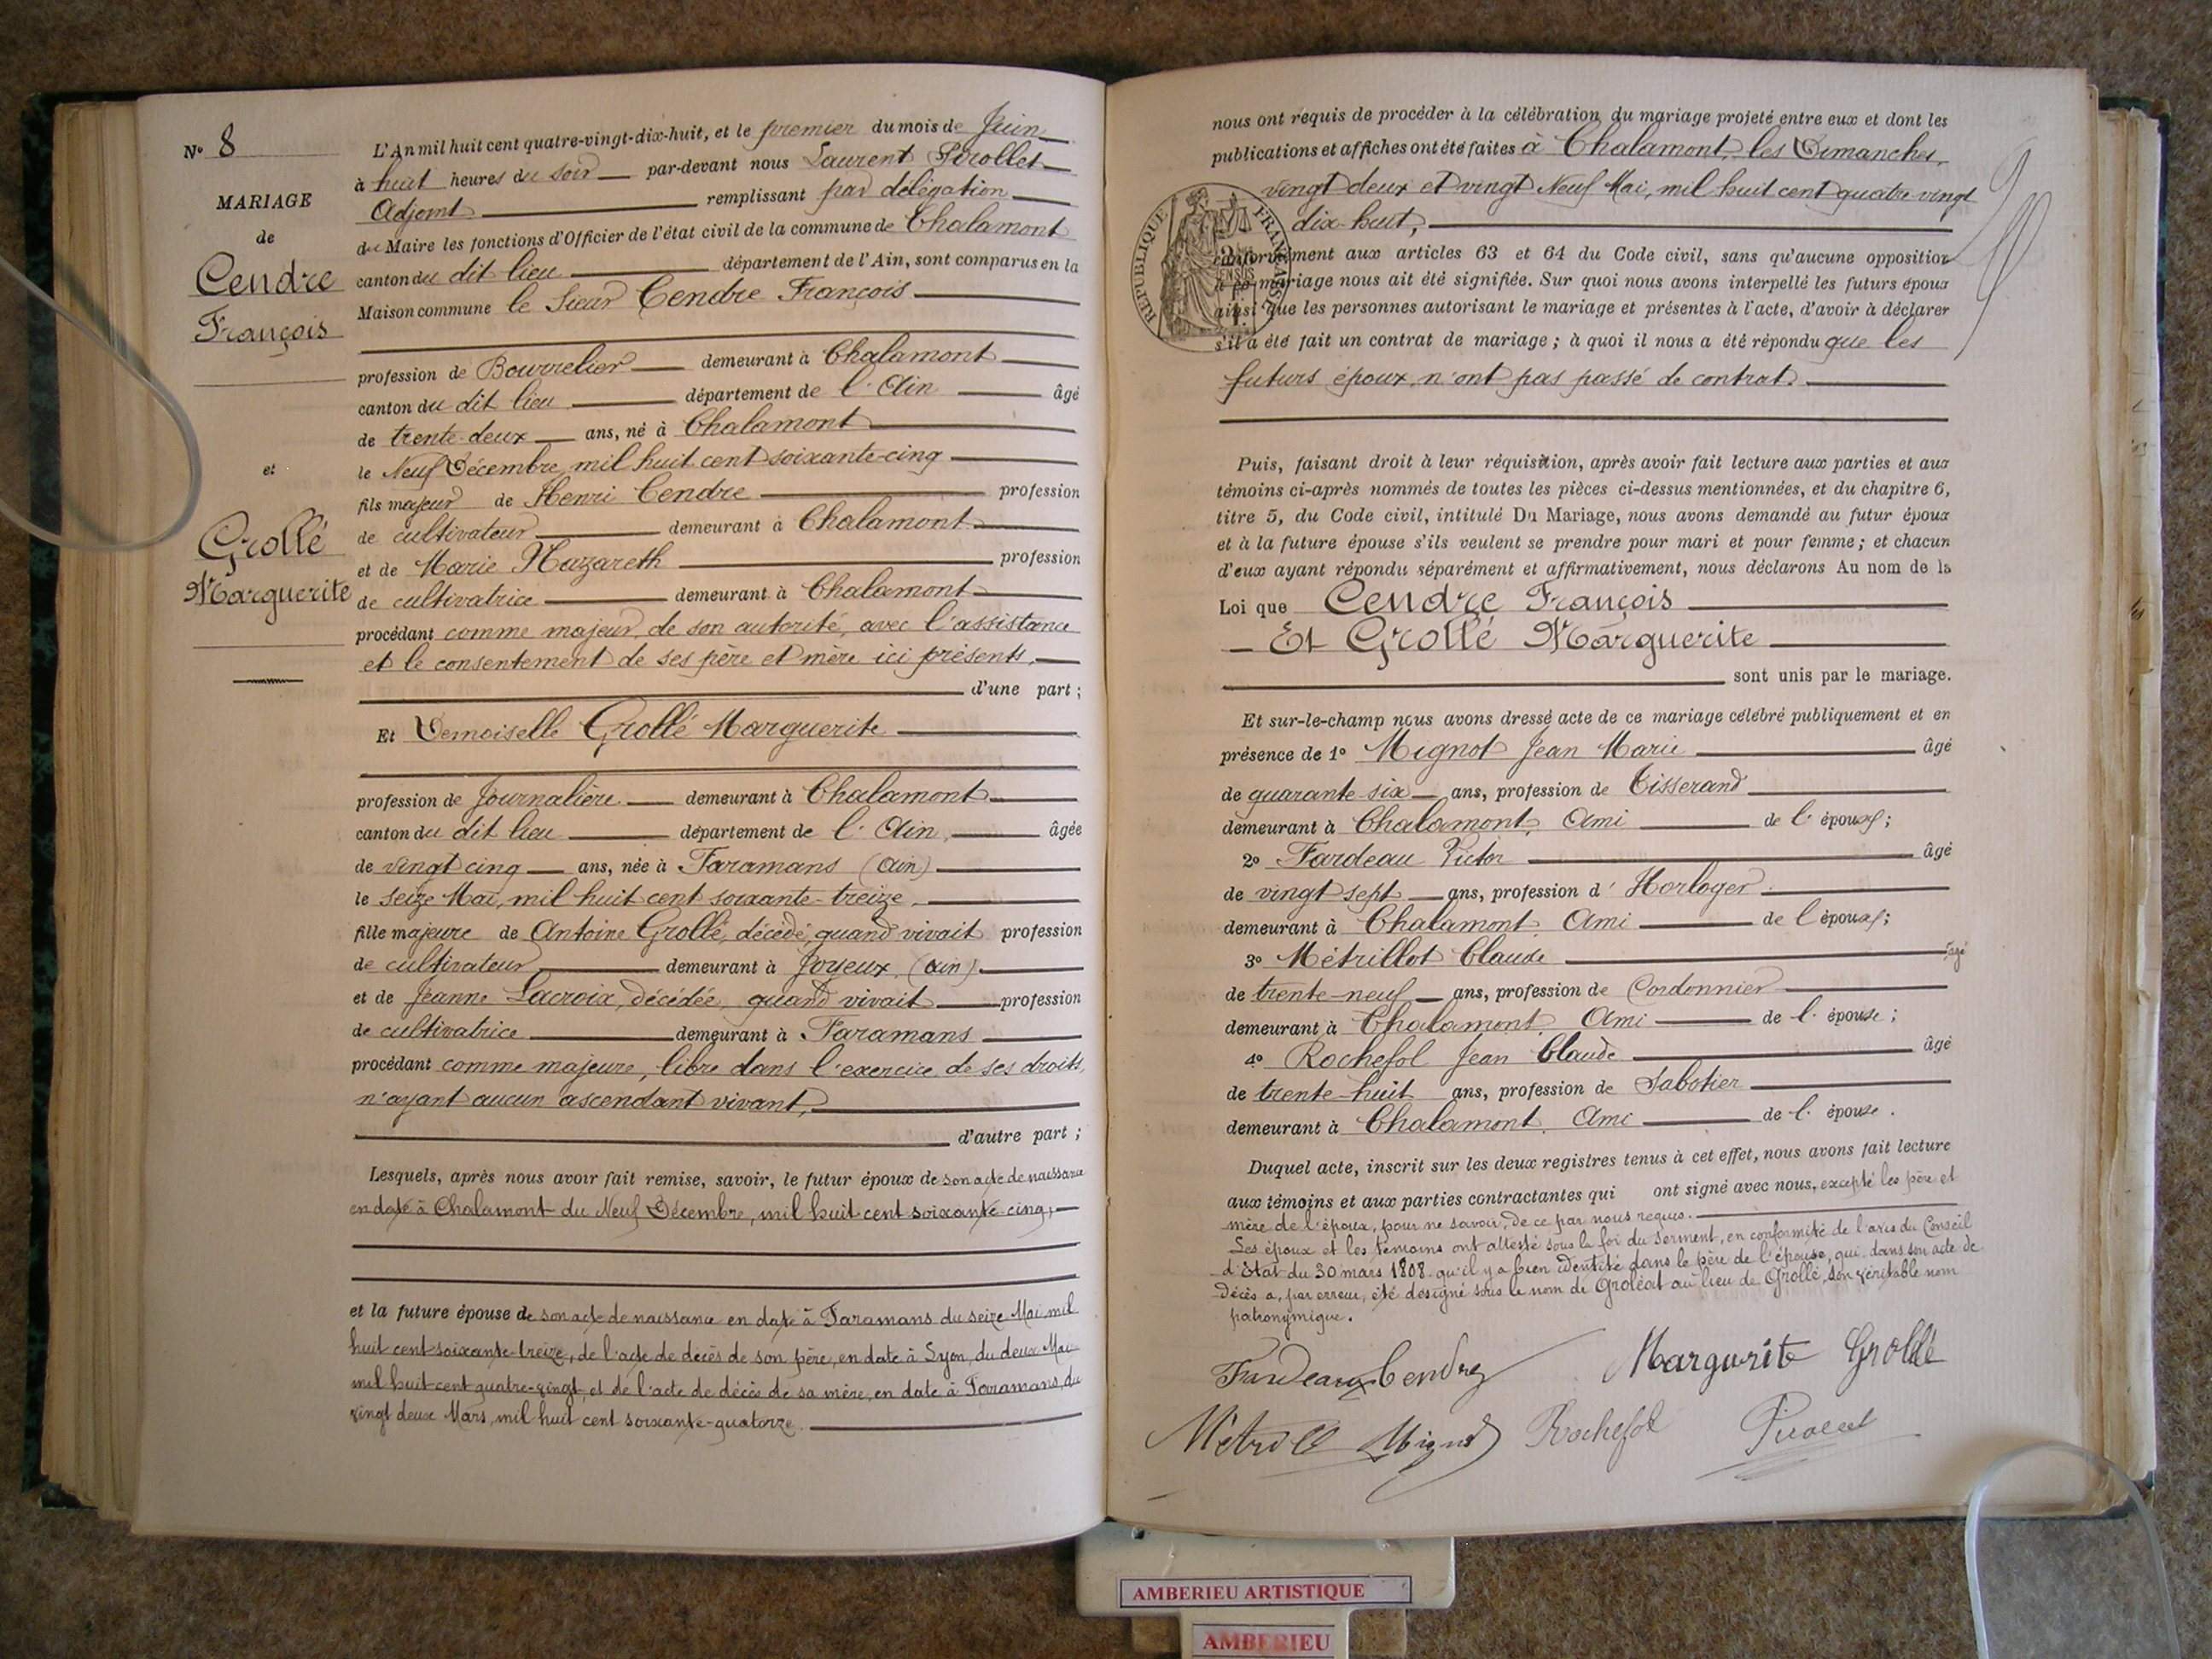 N° 8
MARIAGE
de
Cendre
François
et
Grollé
Marguerite
L'An mil huit cent quatre-vingt-dix-huit, et le premier du mois de Juin
à huit heures du soir par-devant nous Laurent Pirollet
Adjoint remplissant par délégation
du Maire les fonctions d'Officier de l'état civil de la commune de Chalamont
canton du dit lieu département de l'Ain, sont comparus en la
Maison commune le Sieur Cendre François
profession de Bourrelier demeurant à Chalamont
canton du dit lieu département de l'Ain âgé
de trente-deux ans, né à Chalamont
le Neuf Décembre, mil huit cent soixante-cinq
fils majeur de Henri Cendre profession
de cultivateur demeurant à Chalamont
et de Marie Nazareth profession
de cultivatrice demeurant à Chalamont
procédant comme majeur, de son autorité, avec l'assistance
et le consentement de ses père et mère ici présents,
d'une part ;
Et Demoiselle Grollé Marguerite
profession de Journalière demeurant à Chalamont
canton du dit lieu département de l'Ain, âgée
de vingt cinq ans, née à Faramans (Ain)
le seize Mai, mil huit cent soixante-treize,
fille majeure de Antoine Grollé, décédé, quand vivait profession
de cultivateur demeurant à Joyeux, (Ain)
et de Jeanne Lacroix, décédée, quand vivait profession
de cultivatrice demeurant à Faramans
procédant comme majeure, libre dans l'exercice de ses droits,
n'ayant aucun ascendant vivant,
d'autre part ;
Lesquels, après nous avoir fait remise, savoir, le futur époux de son acte de naissance
en date à Chalamont du Neuf Décembre, mil huit cent soixante-cinq,
et la future épouse de son acte de naissance en date à Faramans du seize Mai mil
huit cent soixante-treize, de l'acte de décès de son père, en date à Lyon, du deux Mai
mil huit cent quatre-vingt, et de l'acte de décès de sa mère, en date à Faramans, du
vingt deux Mars, mil huit cent soixante-quatorze.
nous ont requis de procéder à la célébration du mariage projeté entre eux et dont les
publications et affiches ont été faites à Chalamont, les Dimanches,
vingt deux et vingt Neuf Mai, mil huit cent quatre-vingt
dix-huit,
RÉPUBLIQUE FRANÇAISE
conformément aux articles 63 et 64 du Code civil, sans qu'aucune opposition
à ce mariage nous ait été signifiée. Sur quoi nous avons interpellé les futurs époux
ainsi que les personnes autorisant le mariage et présentes à l'acte, d'avoir à déclarer
s'il a été fait un contrat de mariage ; à quoi il nous a été répondu que les
futurs époux n'ont pas passé de contrat.
Puis, faisant droit à leur réquisition, après avoir fait lecture aux parties et aux
témoins ci-après nommés de toutes les pièces ci-dessus mentionnées, et du chapitre 6,
titre 5, du Code civil, intitulé Du Mariage, nous avons demandé au futur époux
et à la future épouse s'ils veulent se prendre pour mari et pour femme ; et chacun
d'eux ayant répondu séparément et affirmativement, nous déclarons Au nom de la
Loi que Cendre François
Et Grollé Marguerite
sont unis par le mariage.
Et sur-le-champ nous avons dressé acte de ce mariage célébré publiquement et en
présence de 1° Mignot Jean Marie âgé
de quarante-six ans, profession de Tisserand
demeurant à Chalamont, Ami de l'époux ;
2° Fardeau Victor âgé
de vingt sept ans, profession d'Horloger
demeurant à Chalamont, Ami de l'époux ;
3° Métrillot Claude âgé
de trente-neuf ans, profession de Cordonnier
demeurant à Chalamont, Ami de l'épouse ;
4° Rochefol Jean Claude âgé
de trente-huit ans, profession de Sabotier
demeurant à Chalamont, Ami de l'épouse.
Duquel acte, inscrit sur les deux registres tenus à cet effet, nous avons fait lecture
aux témoins et aux parties contractantes qui ont signé avec nous, excepté les père et
mère de l'époux, pour ne savoir, de ce par nous requis.
Les époux et les témoins ont attesté sous la foi du serment, en conformité de l'avis du Conseil
d'État du 30 mars 1808 qu'il y a bien identité dans le père de l'épouse, qui, dans son acte de
Décès a, par erreur, été désigné sous le nom de Groléat au lieu de Grollé, son véritable nom
patronymique.
Fardeau Cendre Marguerite Grollé
Métrill Mignot Rochefol Pirollet
AMBERIEU ARTISTIQUE
AMBERIEU